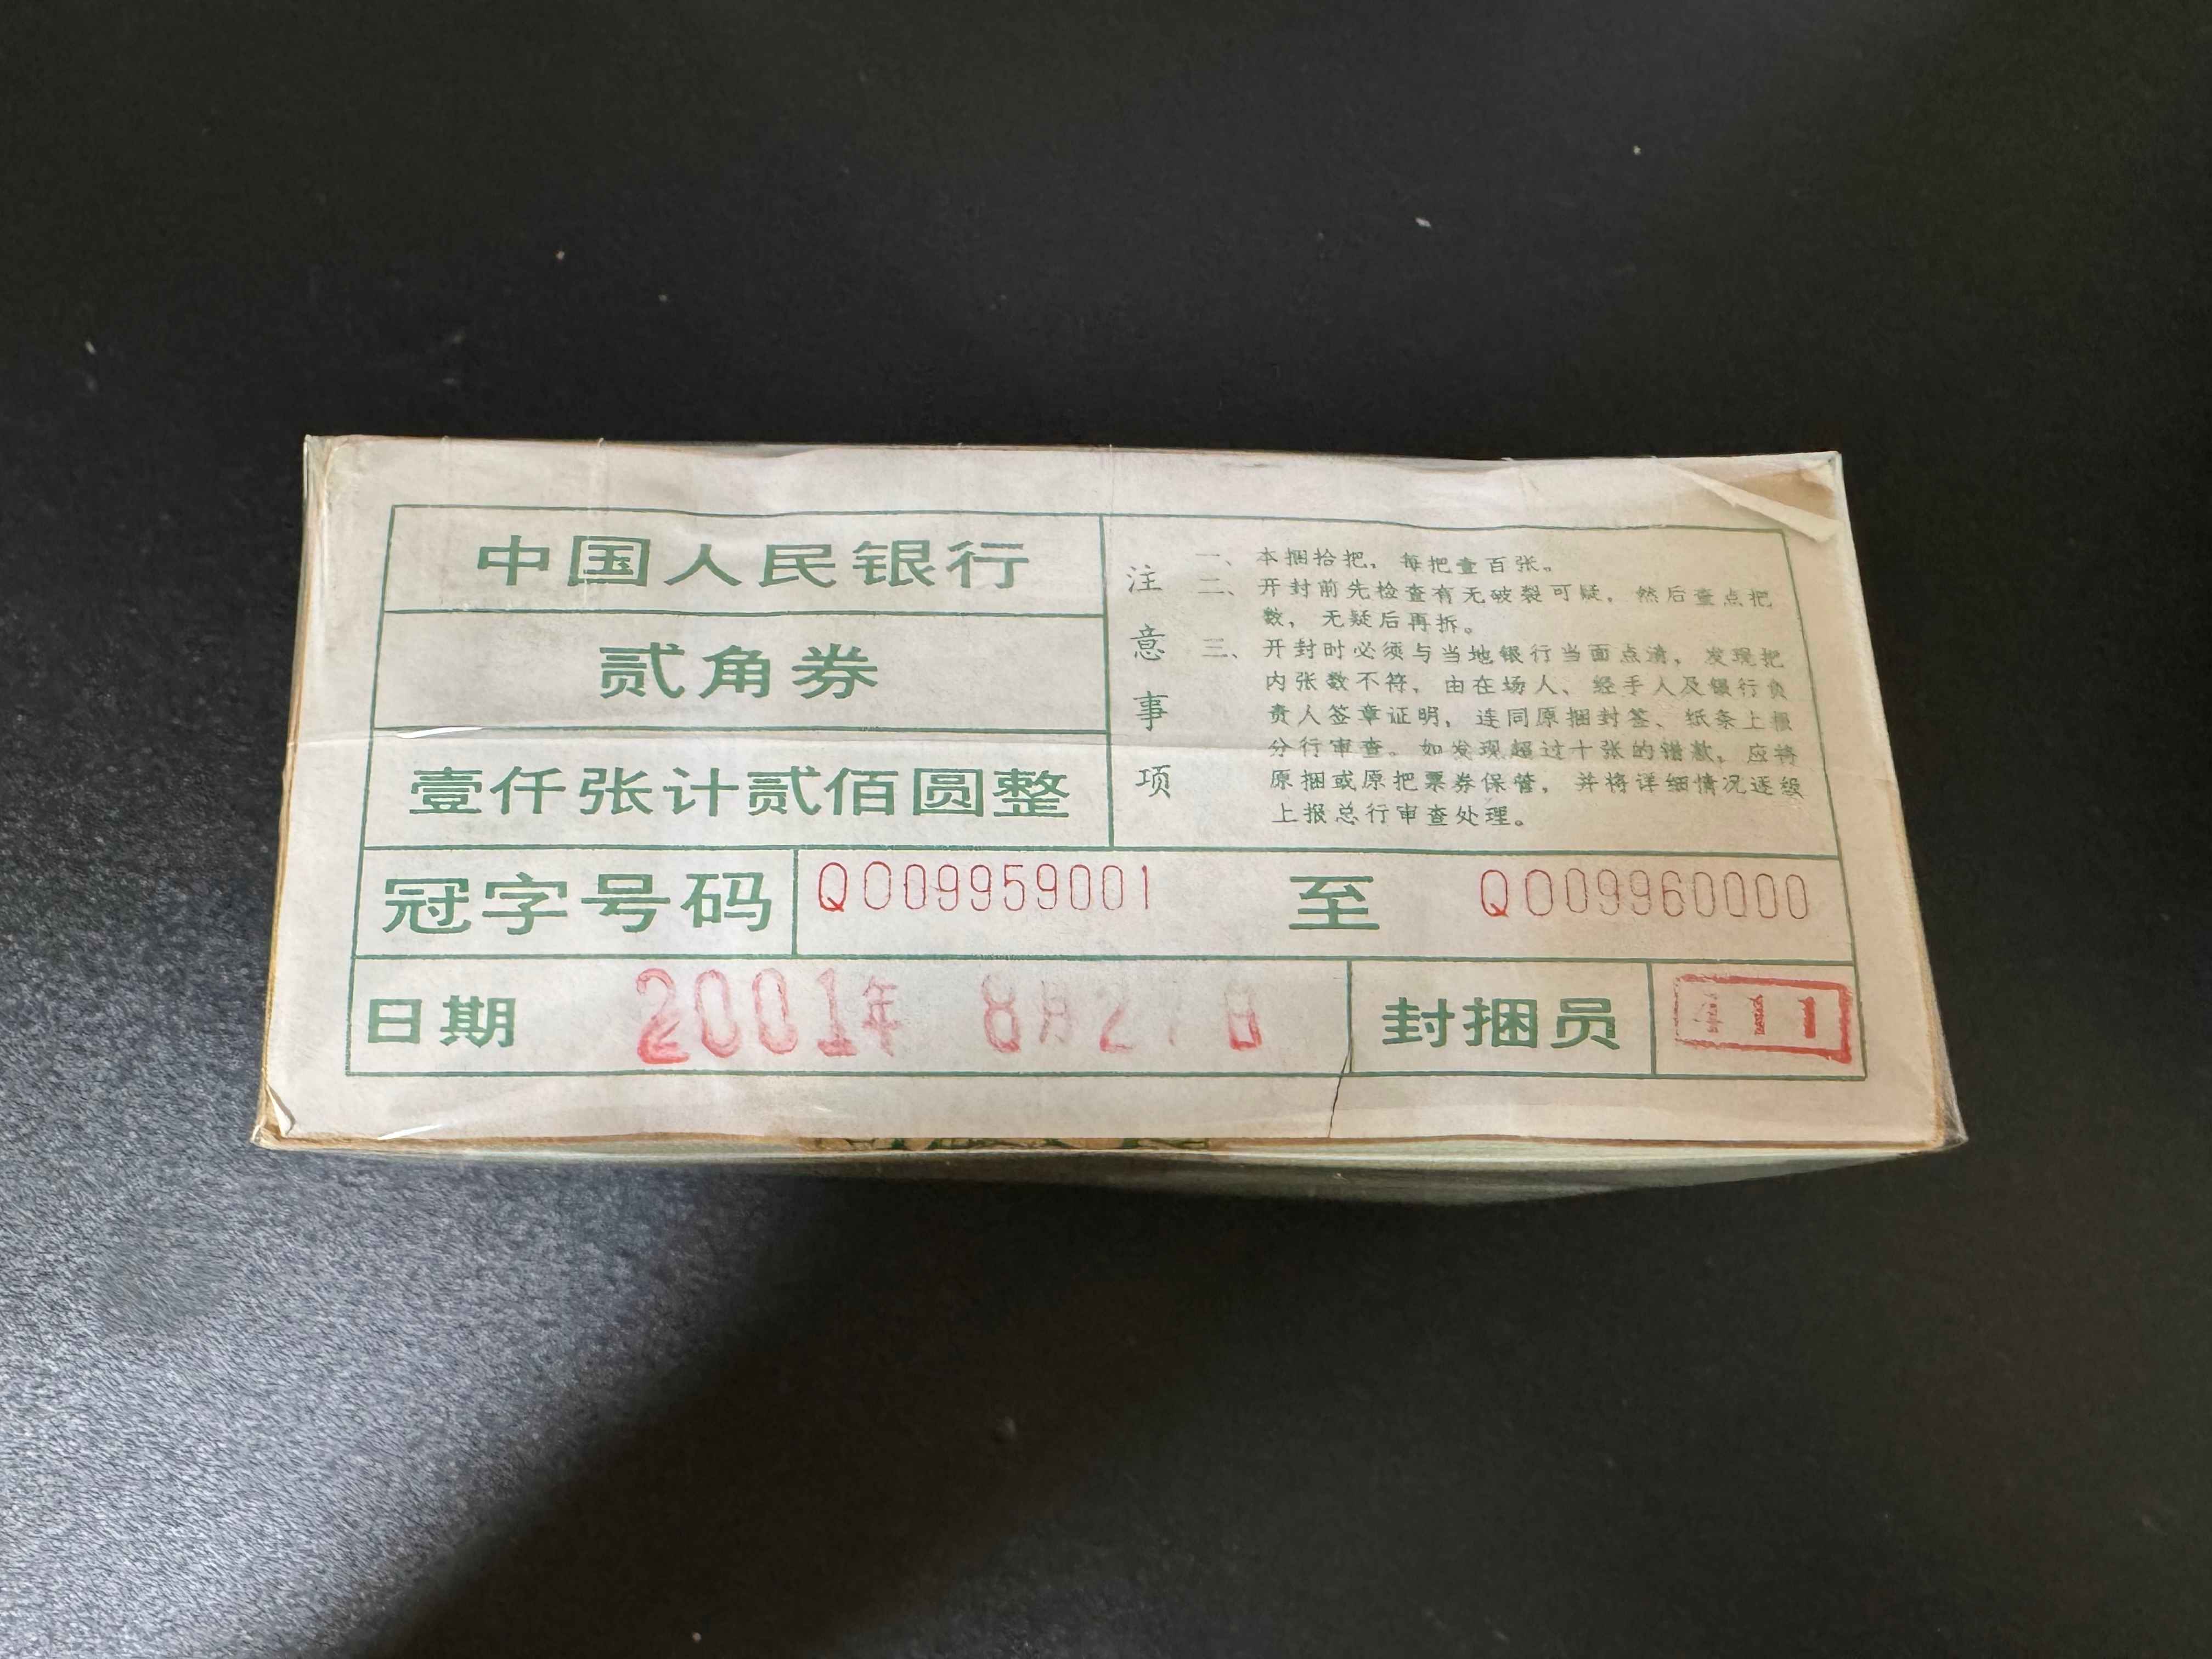 中国人民银行
贰角券
壹仟张计贰佰圆整
注意事项
一、本捆拾把，每把壹百张。
二、开封前先检查有无破裂可疑，然后查点把
数，无疑后再拆。
三、开封时必须与当地银行当面点清，发现把
内张数不符，由在场人、经手人及银行负
责人签章证明，连同原捆封签、纸条上报
分行审查。如发现超过十张的错款，应将
原捆或原把票券保管，并将详细情况逐级
上报总行审查处理。
冠字号码 QO09959001 至 QO09960000
日期 2001年 8月27日 封捆员 411